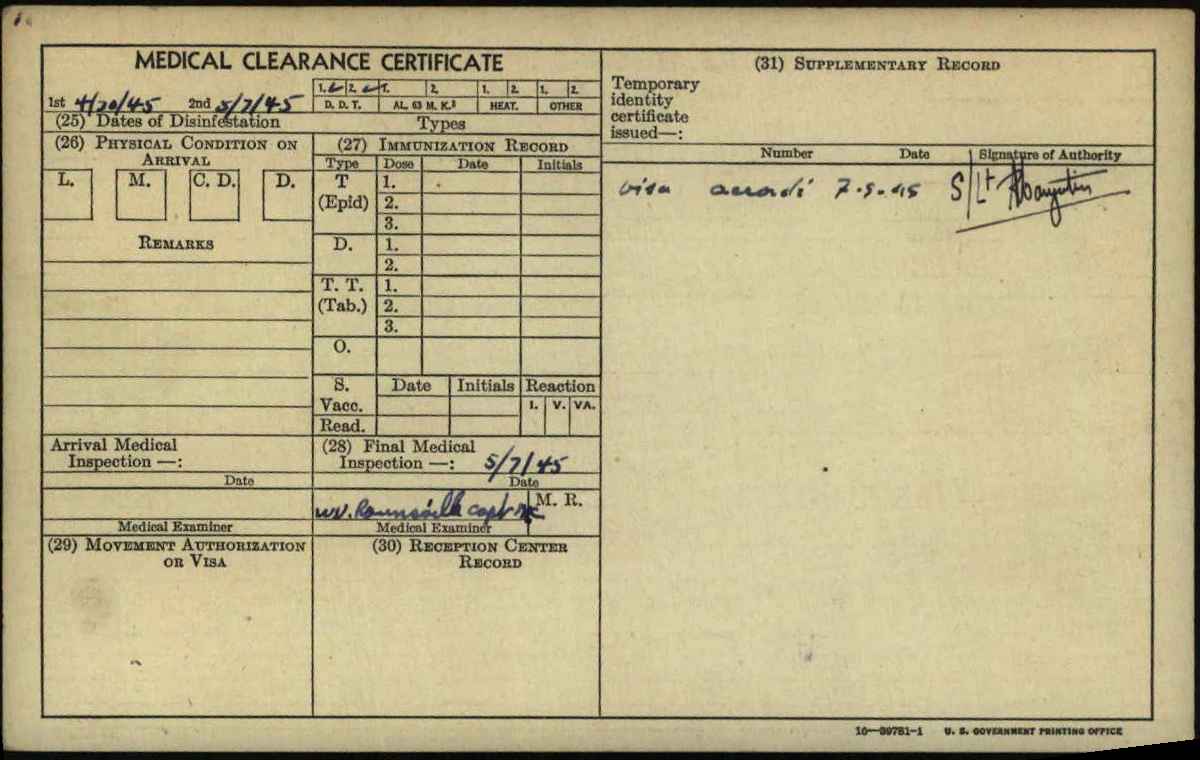 MEDICAL CLEARANCE CERTIFICATE
1. 2. 1. 2. 1. 2. 1. 2.
1st 4/20/45 2nd 5/7/45 D. D. T. AL. 63 M. K.³ HEAT. OTHER
(25) Dates of Disinfestation Types
(26) PHYSICAL CONDITION ON
ARRIVAL
L. M. C. D. D.
REMARKS
(27) IMMUNIZATION RECORD
Type Dose Date Initials
T 1.
(Epid) 2.
3.
D. 1.
2.
T. T. 1.
(Tab.) 2.
3.
O.
S. Date Initials Reaction
Vacc. I. V. VA.
Read.
Arrival Medical
Inspection —:
Date
Medical Examiner
(28) Final Medical
Inspection —: 5/7/45
Date
W.V. Capt MC M. R.
Medical Examiner
(29) MOVEMENT AUTHORIZATION
OR VISA
(30) RECEPTION CENTER
RECORD
(31) SUPPLEMENTARY RECORD
Temporary
identity
certificate
issued—:
Number Date Signature of Authority
visa accordé 7-5-45 S/Lt
16—39781-1 U. S. GOVERNMENT PRINTING OFFICE